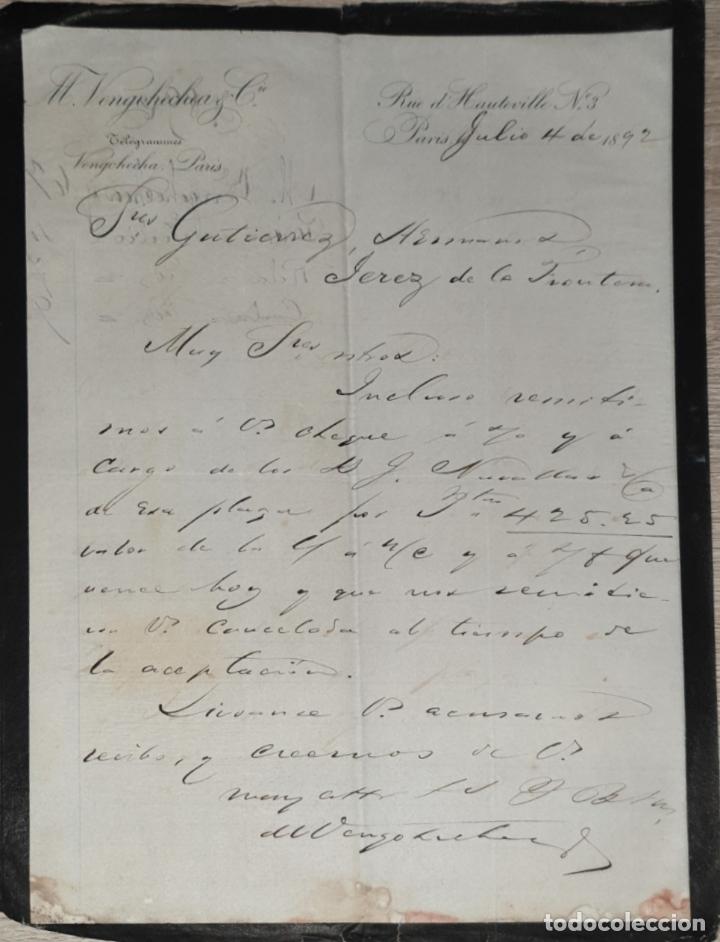 M. Vengohechea & Cie
Rue d'Hauteville No. 3
Télégrammes
Vengohechea. Paris.
Paris, Julio 4 de 1892
Sres Gutierrez, Hermanos
Jerez de la Frontera.
Muy Sres ntros:
Incluso remiti-
mos á Vs cheque á
cargo de los D. J.
de esa plaza por Ptas 425.25
valor de la L/ á m/c y á que
vence hoy y que nos remitie-
on Vs cancelada al tiempo de
la aceptación.
Sirvanse Vs acusarnos
recibo, y creernos de Vs
muy atts
M Vengohechea
todocoleccion